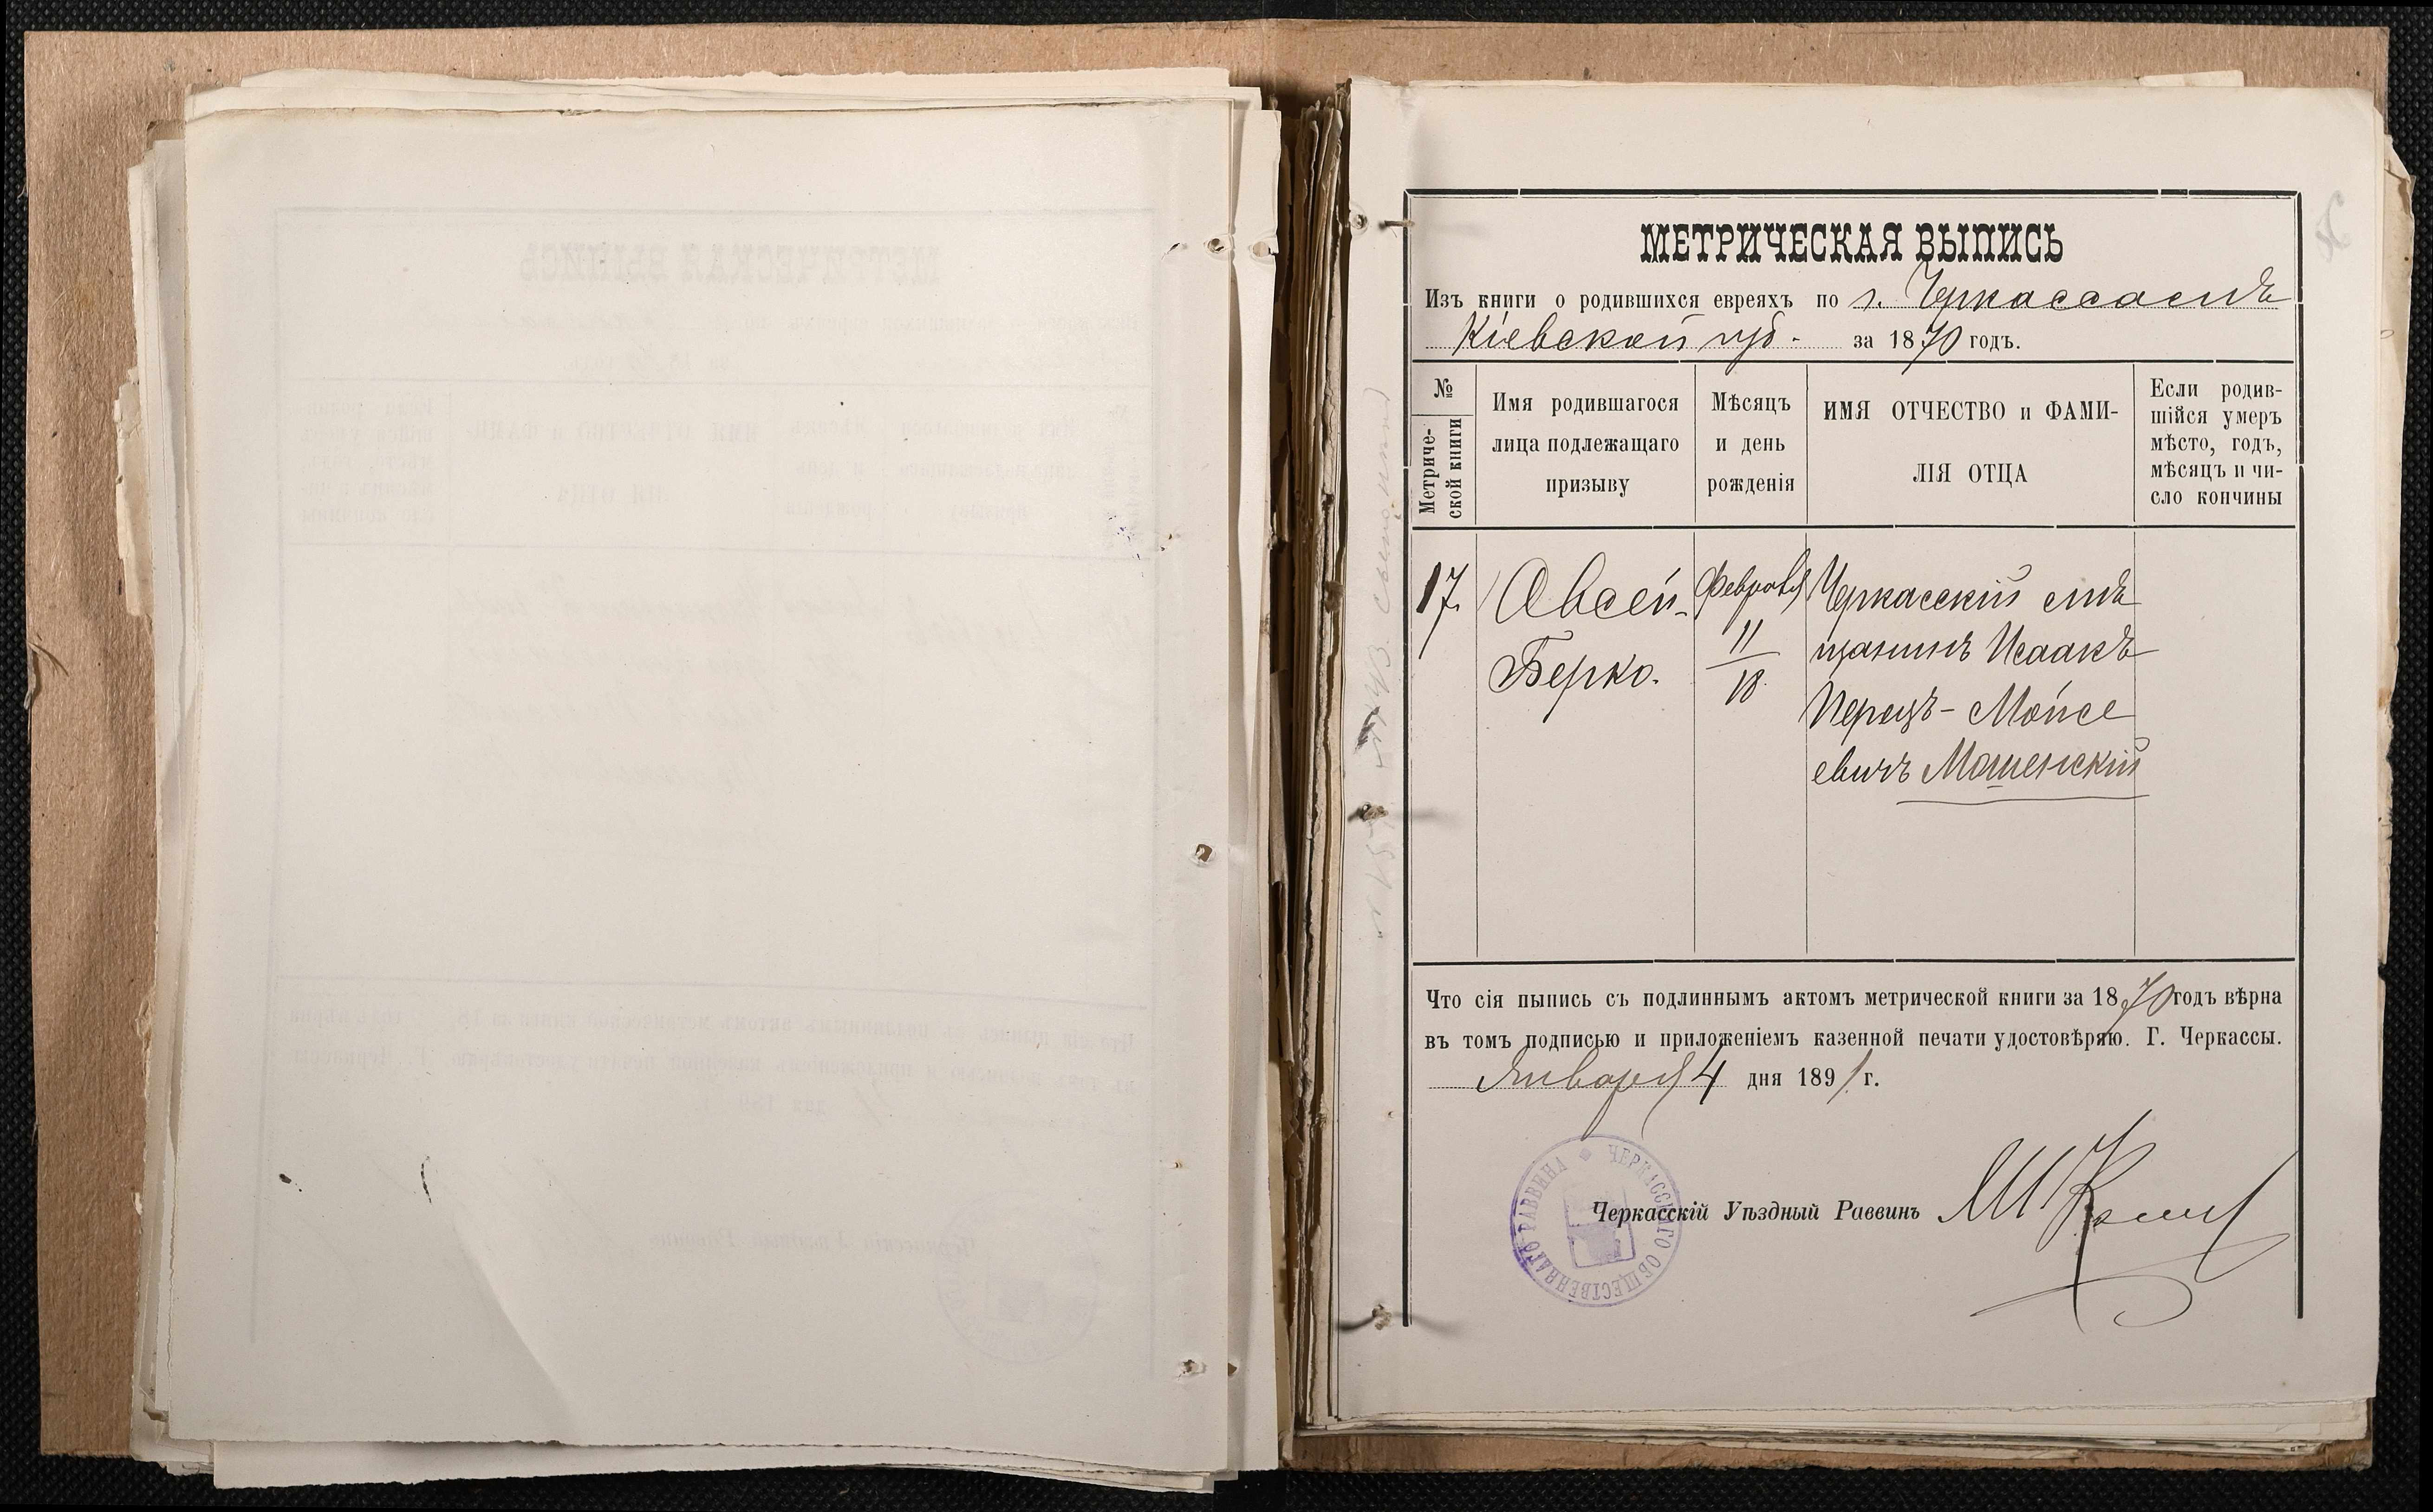 МЕТРИЧЕСКАЯ ВЫПИСЬ
Изъ книги о родившихся евреяхъ по г. Черкассамъ
Кіевской губ. за 1870 годъ.
№
Метриче-
ской книги
Имя родившагося
лица подлежащаго
призыву
Мѣсяцъ
и день
рожденія
ИМЯ ОТЧЕСТВО и ФАМИ-
ЛІЯ ОТЦА
Если родив-
шійся умеръ
мѣсто, годъ,
мѣсяцъ и чи-
сло кончины
17.
Авсей-
Берко.
Февраля
11
18.
Черкасскій мѣ
щанинъ Исаакъ
Перецъ-Мойсе
евичъ Мошенскій
Что сія выпись съ подлиннымъ актомъ метрической книги за 1870 годъ вѣрна
въ томъ подписью и приложеніемъ казенной печати удостовѣряю. Г. Черкассы.
Января 4 дня 1891 г.
Черкасскій Уѣздный Раввинъ
ЧЕРКАССКАГО ОБЩЕСТВЕННАГО РАВВИНА